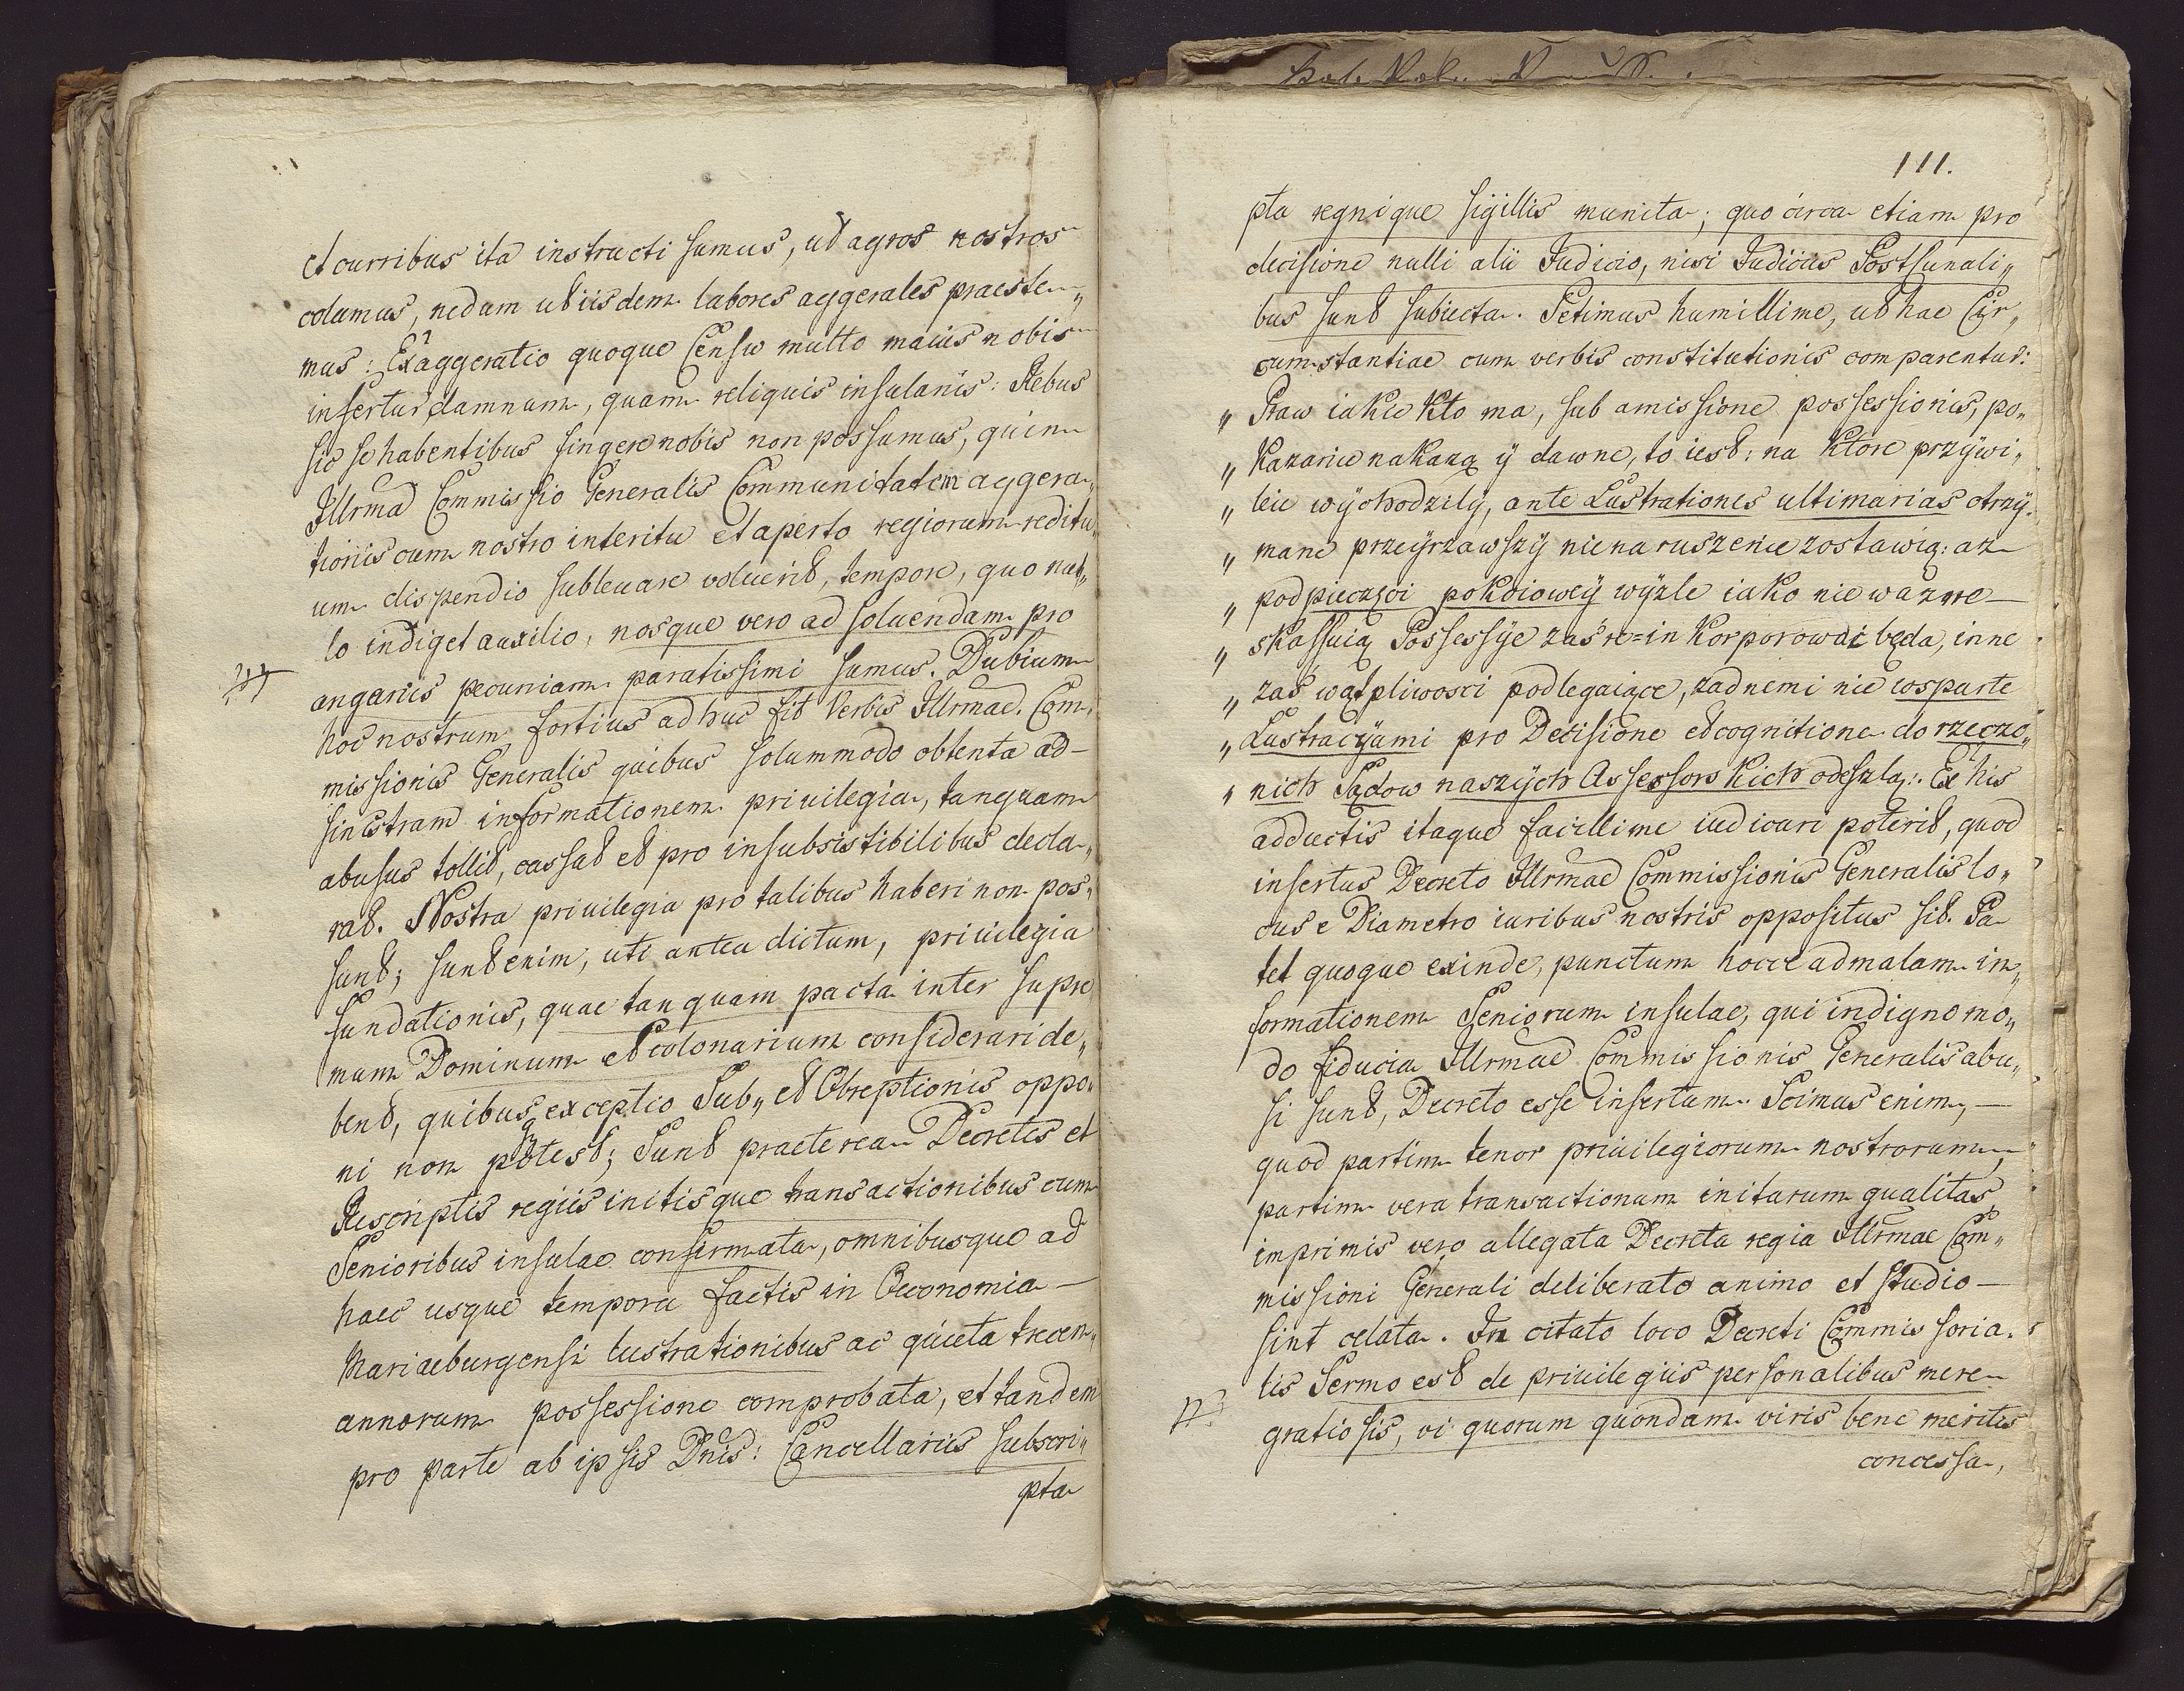 et curribus ita instructi sumus, ut agros nostros
colamus, nedum ut iisdem labores aggerales praeste„
mus: Exaggeratio quoque Censu multo maius nobis
infertur damnum, quam reliquis insulanis: Rebus
sic se habentibus fingere nobis non possumus, quin
Illrma Commissio Generalis Communitatem aggera„
tionis cum nostro interitu et aperto regiorum reditu„
um dispendio subleuare voluerit, tempore, quo nul„
lo indiget auxilio, nosque vero ad soluendam pro
angariis pecuniam paratissimi sumus. Dubium
hoc nostrum fortius adhuc fit Verbis Illrmae. Com„
missionis Generalis quibus solummodo obtenta ad
sinistram informationem priuilegia, tanquam
abusus tollit, cassat et pro insubsistibilibus decla„
rat. Nostra priuilegia pro talibus haberi non pos„
sunt; sunt enim, uti antea dictum, priuilegia
fundationis, quae tanquam pacta inter supre
mum Dominum et colonarium considerari de„
bent, quibus exceptio Sub„ et Obreptionis oppo„
ni non potest; Sunt praeterea Decretis et
Rescriptis regiis initisque transactionibus cum
Senioribus insulae confirmata, omnibusque ad
haec usque tempora factis in Oeconomia —
Mariaeburgensi lustrationibus ac quieta trecen„
annorum possessione comprobata, et tandem
pro parte ab ipsis Dnis: Cancellariis subscri„
pta
111.
pta regnique sigillis munita; quo circa etiam pro
decisione nulli alii Iudicio, nisi Iudiciis Postcunali„
bus sunt subiecta. Petimus humillime, ut hae Cir„
cumstantiae cum verbis constitutionis comparentur:
„ Praw iakie kto ma, sub amissione possessionis, po„
„ kazanie nakażą ÿ dawne, to iest: na ktore przÿwi„
„ leie wÿchodzilÿ, ante Lustrationes ultimarias otrzÿ„
„ mane przeÿrzawszÿ nie naruszenie zostawią: az
„ pod pieczęci pokoiowey wÿzle iako nie ważne —
„ skassuią Possessÿe zaś re=in korporować będa, inne
„ zaś wątpliwosci podlegaiące, zadnemi nie wsparte
„ Lustracÿami pro Decisione et cognitione do rzeczo„
„ nich Sądow naszÿch Assessorskich odeszlą: Ex his
adductis itaque facillime iudicari poterit, quod
insertus Decreto Illrmae Commissionis Generalis lo„
cus e Diametro iuribus nostris oppositus sit. Pa
tet quoque exinde, punctum hocce ad malam in„
formationem Seniorum insulae, qui indigno mo„
do fiducia Illrmae Commissionis Generalis abu„
si sunt, Decreto esse insertum. Scimus enim, —
quod partim tenor priuilegiorum nostrorum,
partim vera transactionum initarum qualitas,
imprimis vero allegata Decreta regia Illrmae Com„
missioni Generali deliberato animo et studio —
sint celata. In citato loco Decreti Commissoria„
lis Sermo est de priuilegiis personalibus mere
gratiosis, vi quorum quondam viris bene meritis
concessa,